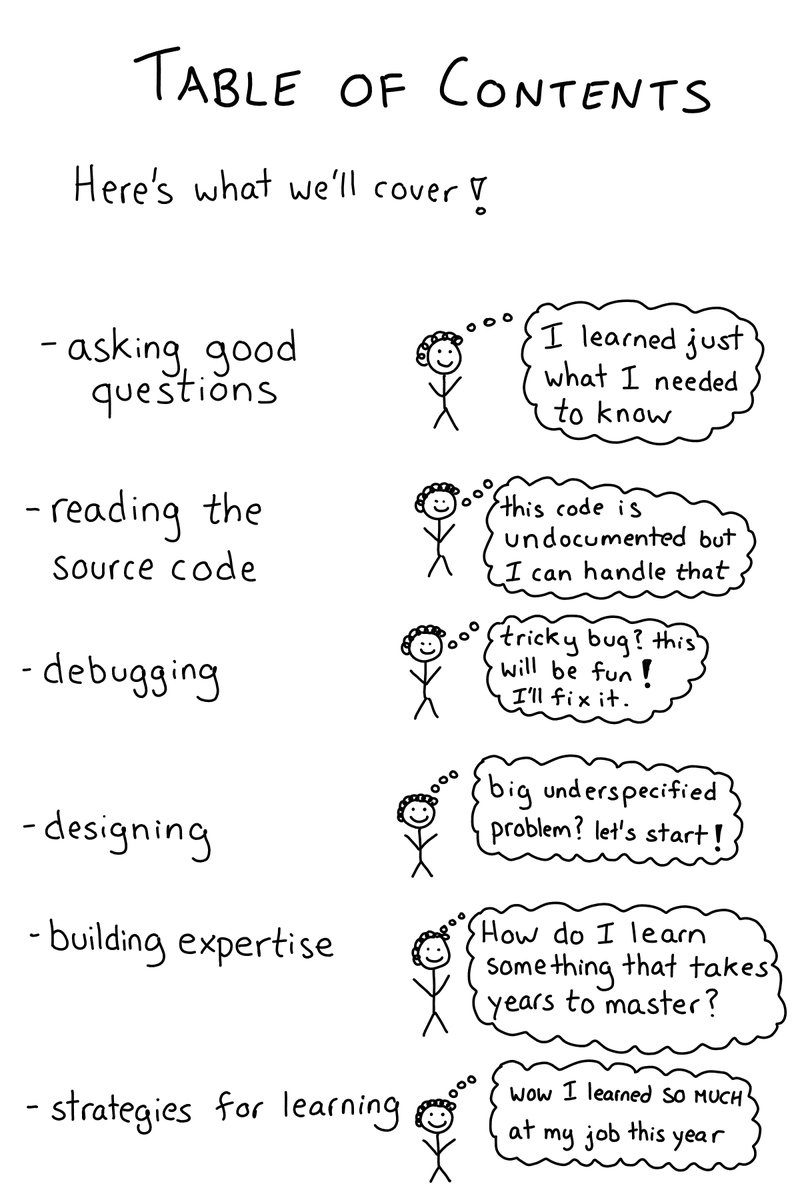 TABLE OF CONTENTS
Here's what we'll cover!
- asking good
questions
I learned just
what I needed
to know
- reading the
source code
this code is
undocumented but
I can handle that
- debugging
tricky bug? this
will be fun!
I'll fix it.
- designing
big underspecified
problem? let's start!
- building expertise
How do I learn
something that takes
years to master?
- strategies for learning
wow I learned SO MUCH
at my job this year